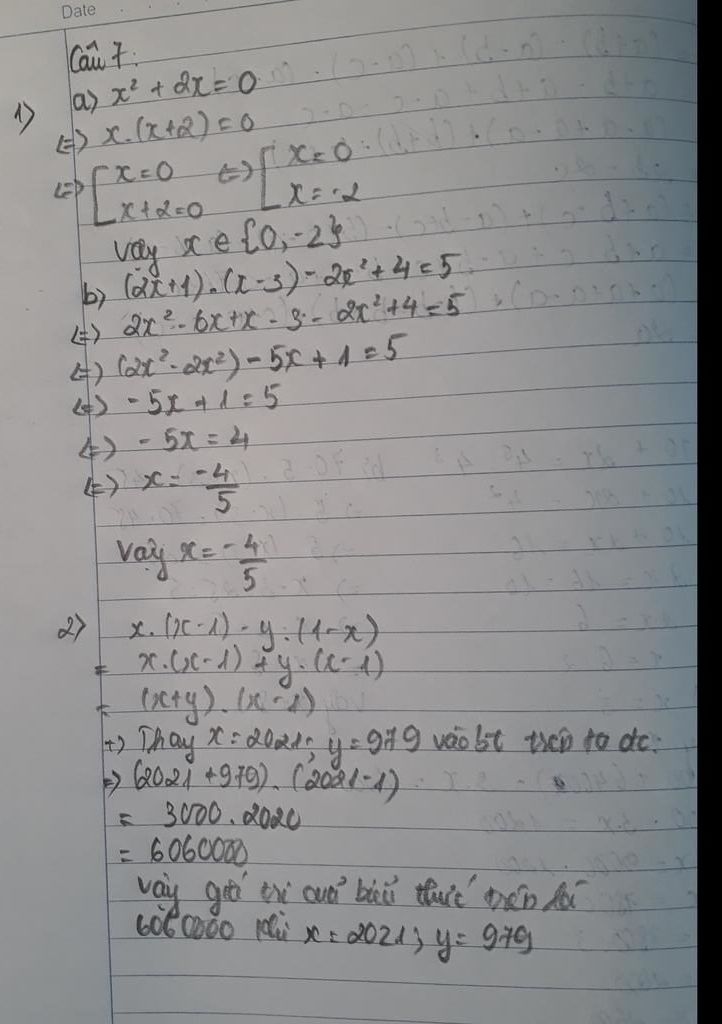 Date
Câu 7:
1) a) x² + 2x = 0
<=> x.(x+2) = 0
<=> [x = 0 <=> [x = 0
x+2 = 0 x = -2
Vậy x ∈ {0, -2}
b) (2x+1).(x-3) - 2x² + 4 = 5
<=> 2x² - 6x + x - 3 - 2x² + 4 = 5
<=> (2x² - 2x²) - 5x + 1 = 5
<=> - 5x + 1 = 5
<=> - 5x = 4
<=> x = -4/5
Vậy x = -4/5
2) x.(x-1) - y.(1-x)
= x.(x-1) + y.(x-1)
= (x+y).(x-1)
+) Thay x = 2021; y = 979 vào bt trên ta dc:
=> (2021 + 979).(2021-1)
= 3000.2020
= 6060000
Vậy giá trị của biểu thức trên là
6060000 khi x = 2021; y = 979